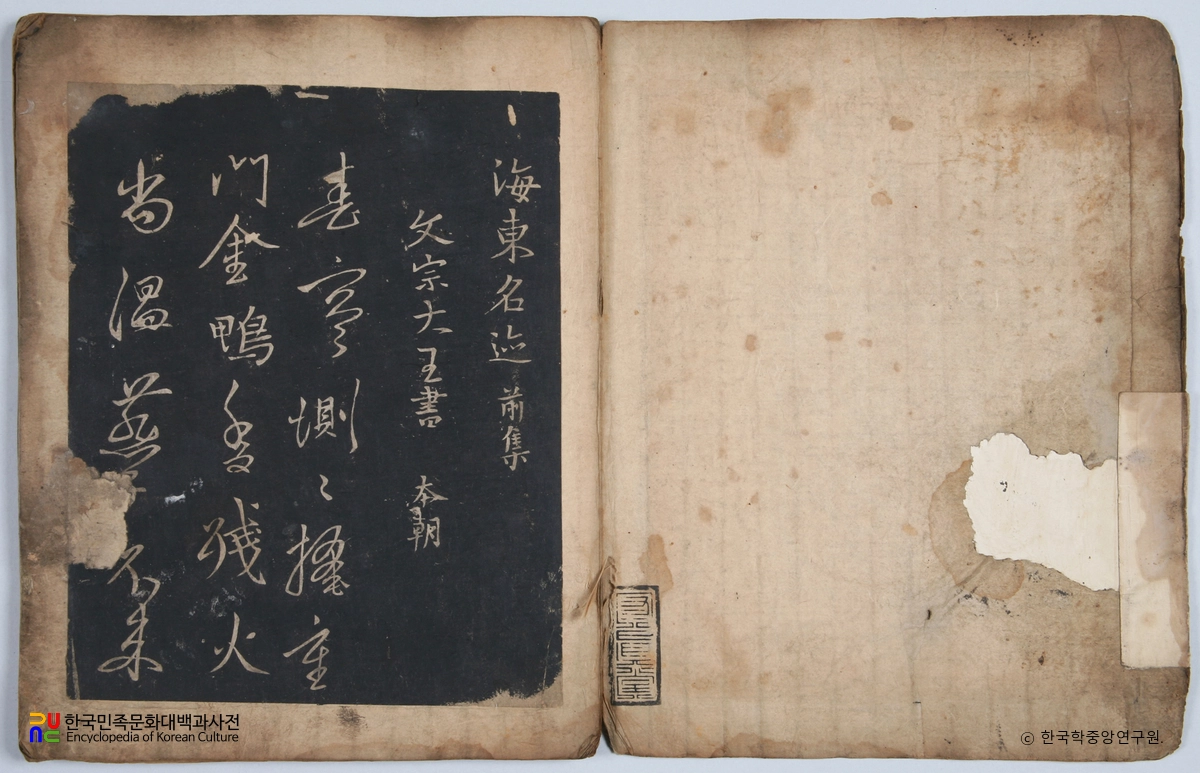 海東名迹 前集
文宗大王書 本朝
春寒惻〻掩重
門金鴨香殘火
尚温燕子不來
한국민족문화대백과사전
Encyclopedia of Korean Culture
ⓒ 한국학중앙연구원.